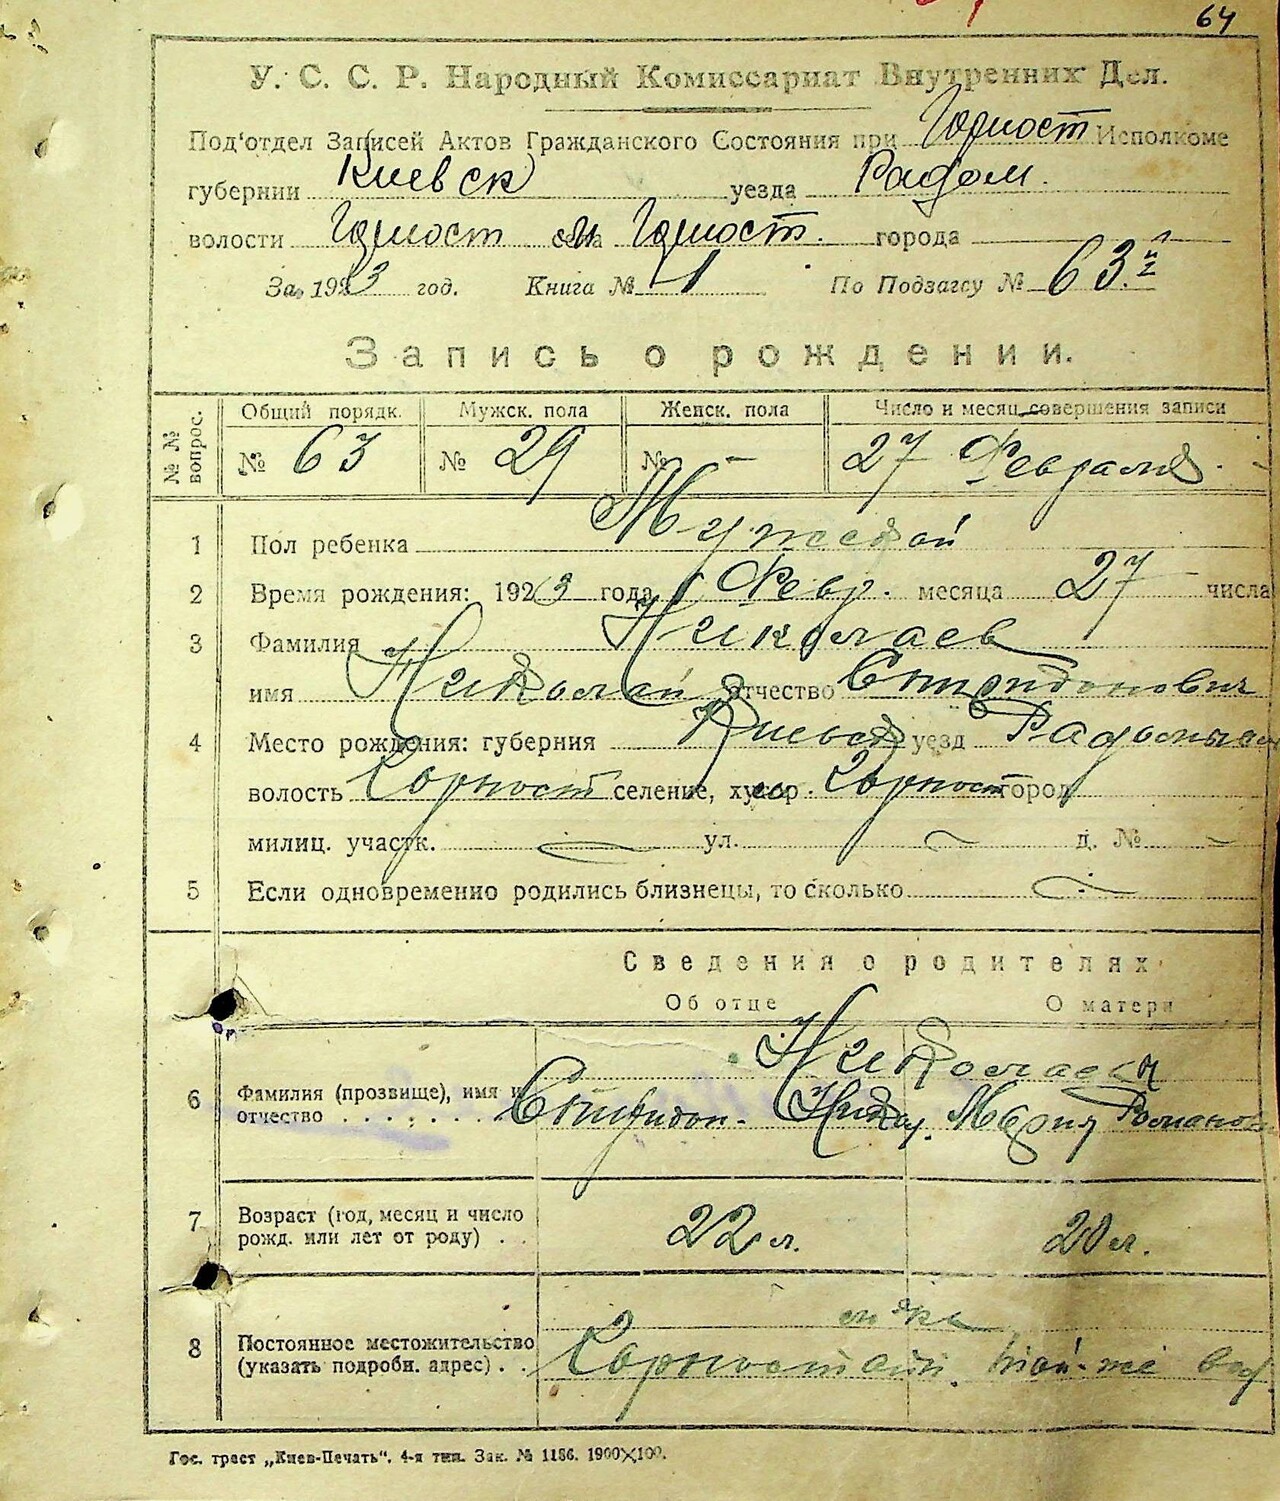 64
У. С. С. Р. Народный Комиссариат Внутренних Дел.
Под'отдел Записей Актов Гражданского Состояния при Горност Исполкоме
губернии Киевск уезда Радом.
волости Горност села м Горност. города
За 1923 год. Книга № 1 По Подзагсу № 63.
Запись о рождении.
№ № вопрос.
Общий порядк. Мужск. пола Женск. пола Число и месяц совершения записи
№ 63 № 29 № - 27 Февраля
1 Пол ребенка Мужской
2 Время рождения: 1923 года Февр. месяца 27 числа
3 Фамилия Николаев
имя Николай отчество Спиридонович
4 Место рождения: губерния Киевск уезд Радомысл
волость Горност селение, хутор Горност город
милиц. участк. ул. д. №
5 Если одновременно родились близнецы, то сколько
Сведения о родителях
Об отце О матери
Николаевы
6 Фамилия (прозвище), имя и Спиридон. Мария Романов
отчество . . . . . . .
7 Возраст (год, месяц и число 22 л. 20 л.
рожд. или лет от роду) . .
8 Постоянное местожительство
(указать подробн. адрес) . . Горностай той-же вол
Гос. трест „Киев-Печать“. 4-я тип. Зак. № 1186. 1900×100.